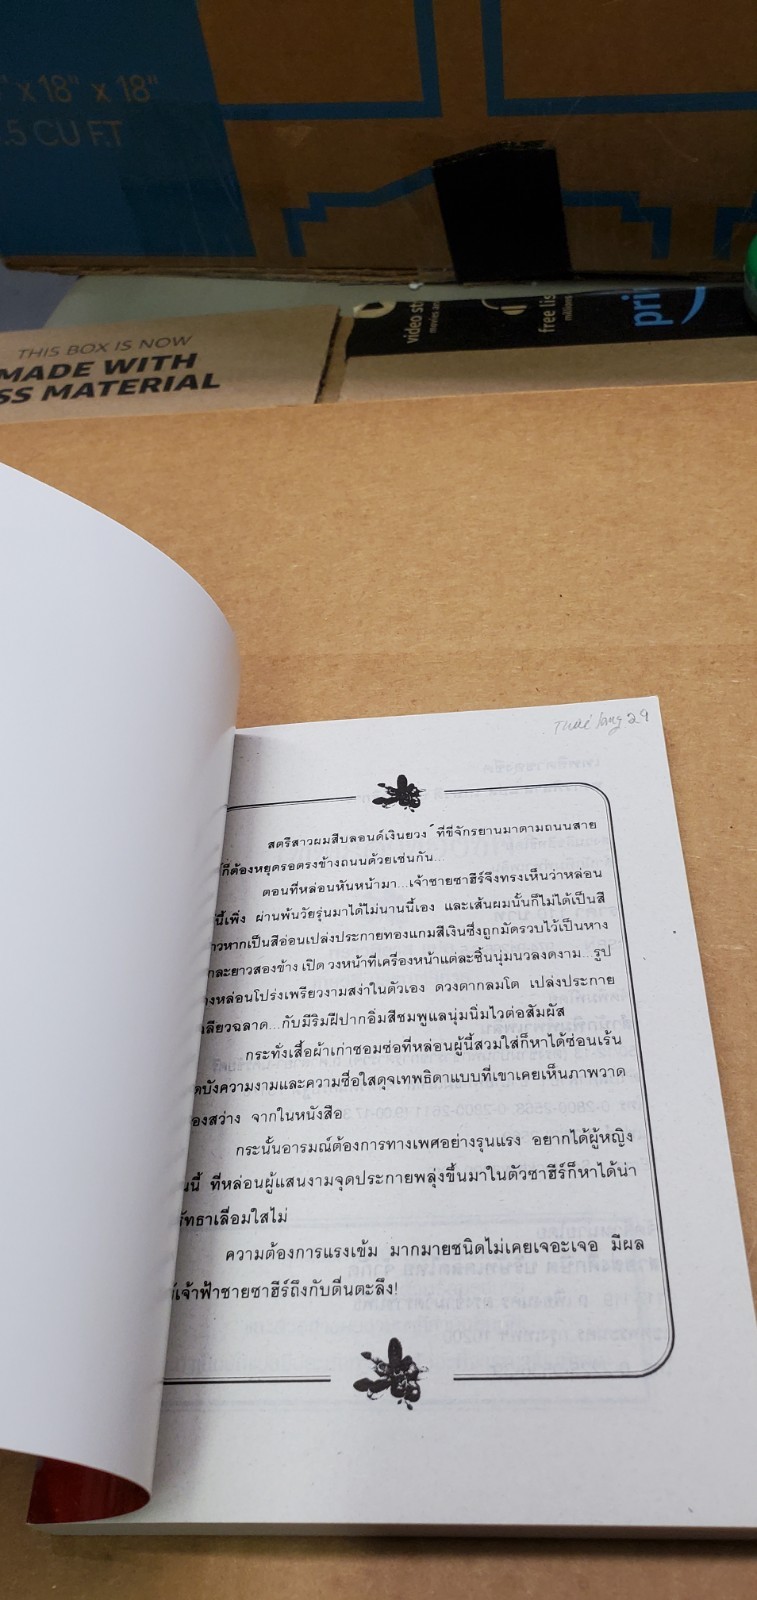 " x 18" x 18"
.5 CU FT
video st
movies an
free lis
millions
pri
THIS BOX IS NOW
MADE WITH
SS MATERIAL
Thai lang 29
สตรีสาวผมสีบลอนด์เงินยวง ที่ขี่จักรยานมาตามถนนสาย
ก็ต้องหยุดรอตรงข้างถนนด้วยเช่นกัน...
ตอนที่หล่อนหันหน้ามา...เจ้าชายซาฮีร์จึงทรงเห็นว่าหล่อน
นี้เพิ่ง ผ่านพ้นวัยรุ่นมาได้ไม่นานนี้เอง และเส้นผมนั้นก็ไม่ได้เป็นสี
าวหากเป็นสีอ่อนเปล่งประกายทองแกมสีเงินซึ่งถูกมัดรวบไว้เป็นหาง
กละยาวสองข้าง เปิด วงหน้าที่เครื่องหน้าแต่ละชิ้นนุ่มนวลงดงาม...รูป
งหล่อนโปร่งเพรียวงามสง่าในตัวเอง ดวงตากลมโต เปล่งประกาย
ลียวฉลาด...กับมีริมฝีปากอิ่มสีชมพูแลนุ่มนิ่มไวต่อสัมผัส
กระทั่งเสื้อผ้าเก่าซอมซ่อที่หล่อนผู้นี้สวมใส่ก็หาได้ซ่อนเร้น
ดบังความงามและความซื่อใสดุจเทพธิดาแบบที่เขาเคยเห็นภาพวาด
องสว่าง จากในหนังสือ
กระนั้นอารมณ์ต้องการทางเพศอย่างรุนแรง อยากได้ผู้หญิง
นนี้ ที่หล่อนผู้แสนงามจุดประกายพลุ่งขึ้นมาในตัวซาฮีร์ก็หาได้น่า
รัทธาเลื่อมใสไม่
ความต้องการแรงเข้ม มากมายชนิดไม่เคยเจอะเจอ มีผล
ห้เจ้าฟ้าชายซาฮีร์ถึงกับตื่นตะลึง!